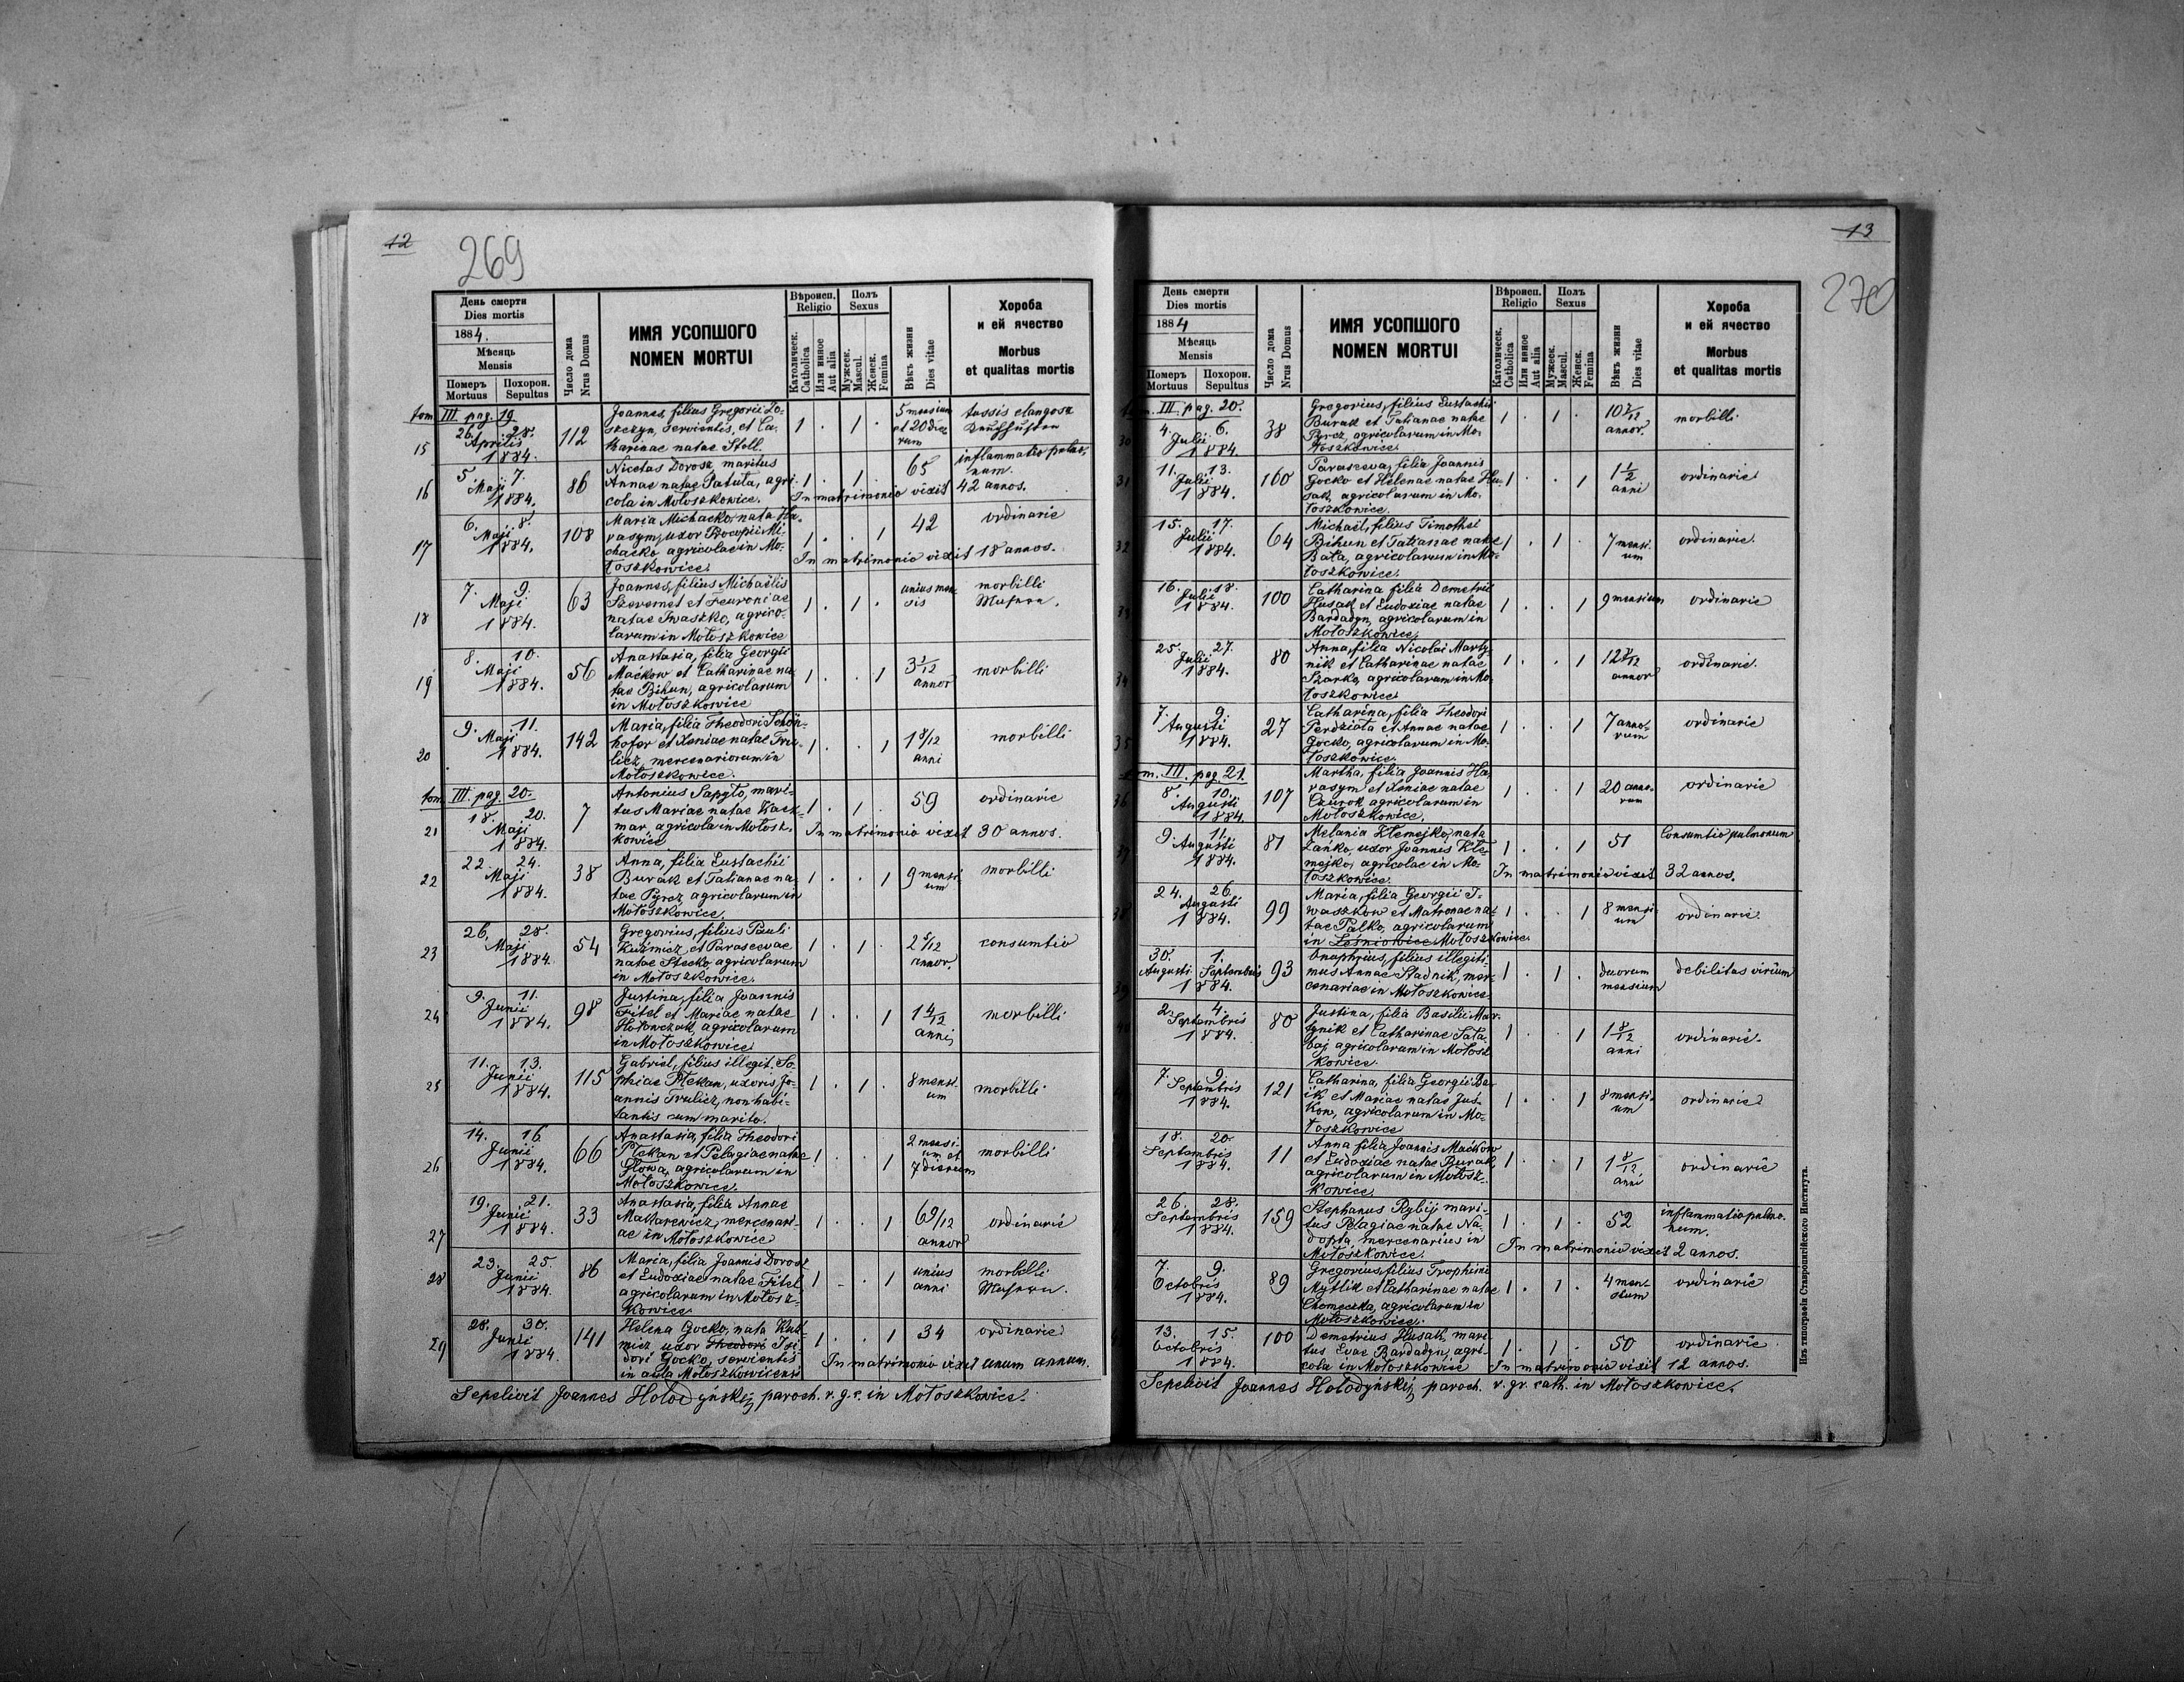 12
269
День смерти
Dies mortis
1884.
Мѣсяць
Mensis
Померъ Похорон.
Mortuus Sepultus
Число дома
Nrus Domus
ИМЯ УСОПШОГО
NOMEN MORTUI
Вѣроисп.
Religio
Католическ.
Catholica
Или инное
Aut alia
Полъ
Sexus
Мужеск.
Mascul.
Женск.
Femina
Вѣкъ жизни
Dies vitae
Хороба
и ей ячество
Morbus
et qualitas mortis
tom III. pag. 19.
15 26. 28. Aprilis 1884. 112
Joannes, filius Gregorii
servientis, et Ca-
tharinae natae Stoll.
1 . 1 . 5 mensium et 20 dierum
tussis clangosa
16 5. 7. Maji 1884. 86
Nicetas Dorosz, maritus
Annae natae Patula, agri-
cola in Mołoszkowice.
1 . 1 . 65 inflammatio pulmonum.
In matrimonio vixit 42 annos.
17 6. 8. Maji 1884. 108
Maria Michacko, nata Ha-
rasym, uxor Procopii Mi-
chacko, agricolae in Mo-
łoszkowice.
1 . . 1 42 ordinarie
In matrimonio vixit 18 annos.
18 7. 9. Maji 1884. 63
Joannes, filius Michaëlis
Szeremet et Feuroniae
natae Iwaszko, agrico-
larum in Mołoszkowice
1 . 1 . unius mensis morbilli
19 8. 10. Maji 1884. 56
Anastasia, filia Georgii
Maćkow et Catharinae na-
tae Bihun, agricolarum
in Mołoszkowice
1 . . 1 annor morbilli
20 9. 11. Maji 1884. 142
Maria, filia Theodori Schön-
hofer et Xeniae natae Tru-
licz, mercenariorum in
Mołoszkowice.
1 . . 1 1 8/12 anni morbilli
tom III. pag. 20.
21 18. 20. Maji 1884. 7
Antonius Sapyło, mari-
tus Mariae natae Kacz-
mar, agricola in Mołosz-
kowice
1 . 1 . 59 ordinarie
In matrimonio vixit 30 annos.
22 22. 24. Maji 1884. 38
Anna, filia Eustachii
Burak et Tatianae na-
tae Pyrcz, agricolarum in
Mołoszkowice.
1 . . 1 9 mensium morbilli
23 26. 28. Maji 1884. 54
Gregorius, filius Pauli
Kuźmicz, et Parascevae
natae Stecko, agricolarum
in Mołoszkowice.
1 . 1 . 2 5/12 annor. consumtio
24 9. 11. Junii 1884. 98
Justina, filia Joannis
Fitel et Mariae natae
Hołowczak, agricolarum
in Mołoszkowice
1 . . 1 1 4/12 anni morbilli
25 11. 13. Junii 1884. 115
Gabriel, filius illegit. So-
phiae Plekan, uxoris Jo-
annis Trulicz, non habi-
tantis cum marito.
1 . 1 . 8 mensium morbilli
26 14. 16. Junii 1884. 66
Anastasia, filia Theodori
Plekan et Pelagiae natae
Głowa, agricolarum in
Mołoszkowice.
1 . . 1 2 mensium et 7 dierum morbilli
27 19. 21. Junii 1884. 33
Anastasia, filia Annae
Makarewicz, mercenari-
ae in Mołoszkowice
1 . . 1 6 9/12 annor ordinarie
28 23. 25. Junii 1884. 86
Maria, filia Joannis Dorosz
et Eudoxiae natae Fitel,
agricolarum in Mołosz-
kowice.
1 - . 1 unius anni morbilli
29 28. 30. Junii 1884. 141
Helena Gocko, nata Kuź-
micz uxor Theodori Isi-
dori Gocko, servientis
in aula Mołoszkowicensi
1 . . 1 34 ordinarie
In matrimonio vixit unum annum.
Sepelivit Joannes Hołodyńskij, paroch. r. g. c. in Mołoszkowice.
13
270
День смерти
Dies mortis
1884
Мѣсяць
Mensis
Померъ Похорон.
Mortuus Sepultus
Число дома
Nrus Domus
ИМЯ УСОПШОГО
NOMEN MORTUI
Вѣроисп.
Religio
Католическ.
Catholica
Или инное
Aut alia
Полъ
Sexus
Мужеск.
Mascul.
Женск.
Femina
Вѣкъ жизни
Dies vitae
Хороба
и ей ячество
Morbus
et qualitas mortis
tom. III. pag. 20.
30 4. 6. Julii 1884 38
Gregorius, filius Eustachii
Burak et Tatianae natae
Pyrcz, agricolarum in Mo-
łoszkowice.
1 . 1 . annor. morbilli
31 11. 13. Julii 1884. 160
Parasceva, filia Joannis
Gocko et Helenae natae Hu-
sak, agricolarum in Mo-
łoszkowice.
1 . . 1 1 1/2 anni ordinarie
32 15. 17. Julii 1884. 64
Michaël, filius Timothei
Bihun et Tatianae natae
Bała, agricolarum in Mo-
łoszkowice.
1 . 1 . 7 mensium ordinarie.
33 16. 18. Julii 1884. 100
Catharina filia Demetrii
Husak et Eudoxiae natae
Bardadyn, agricolarum in
Mołoszkowice.
1 . . 1 9 mensium ordinarie
34 25. 27. Julii 1884. 80
Anna, filia Nicolai Marty-
nik et Catharinae natae
Szarko, agricolarum in Mo-
łoszkowice
1 . . 1 annor ordinarie.
35 7. 9. Augusti 1884. 27
Catharina, filia Theodori
Perdziola et Annae natae
Gocko, agricolarum in Mo-
łoszkowice.
1 . . 1 7 annorum ordinarie
tom. III. pag. 21.
36 8. 10. Augusti 1884. 107
Martha, filia Joannis Ha-
rasym et Xeniae natae
Czurok agricolarum in
Mołoszkowice.
1 . . 1 20 annorum ordinarie
37 9. 11. Augusti 1884. 81
Melania Klemejko, nata
Łańko, uxor Joannis Kle-
mejko, agricolae in Mo-
łoszkowice.
1 . . 1 51 Consumtio pulmonum
In matrimonio vixit 32 annos.
38 24. 26. Augusti 1884. 99
Maria, filia Georgii I-
waszkow et Matronae na-
tae Palko, agricolarum
in Leśniowice Mołoszkowice.
1 . . 1 8 mensium ordinarie
39 30. 1. Augusti Septembris 1884. 93
Onuphrius, filius illegiti-
mus Annae Stadnik, mer-
cenariae in Mołoszkowice
1 . 1 . duorum mensium debilitas virium
2. 4. Septembris 1884. 80
Justina, filia Basilii Mar-
tynik et Catharinae
agricolarum in Mołosz
kowice.
1 . . 1 1 8/12 anni ordinarie
7. 9. Septembris 1884. 121
Catharina, filia Georgii
et Mariae natae Jus-
kow, agricolarum in Mo-
łoszkowice
1 . . 1 8 mensium ordinarie
18. 20. Septembris 1884. 11
Anna filia Joannis Maćkow
et Eudoxiae natae Burak
agricolarum in Mołosz-
kowice
1 . . 1 1 8/12 anni ordinarie
26. 28. Septembris 1884. 159
Stephanus Rybij mari-
tus Pelagiae natae Na-
dopta, mercenarius in
Mołoszkowice.
1 . 1 . 52 inflammatio pulmonum.
In matrimonio vixit 2 annos.
7. 9. Octobris 1884. 89
Gregorius, filius Trophimi
Mytlik et Catharinae natae
Chomeczka, agricolarum in
Mołoszkowice.
1 . 1 . 4 mensium ordinarie
13. 15. Octobris 1884. 100
Demetrius Husak, mari-
tus Evae Bardadyn, agri-
cola in Mołoszkowice
1 . 1 . 50 ordinarie
In matrimonio vixit 12 annos.
Sepelivit Joannes Hołodyńskij, paroch. r. gr. cath. in Mołoszkowice.
Изъ типографіи Ставропигійского Института.